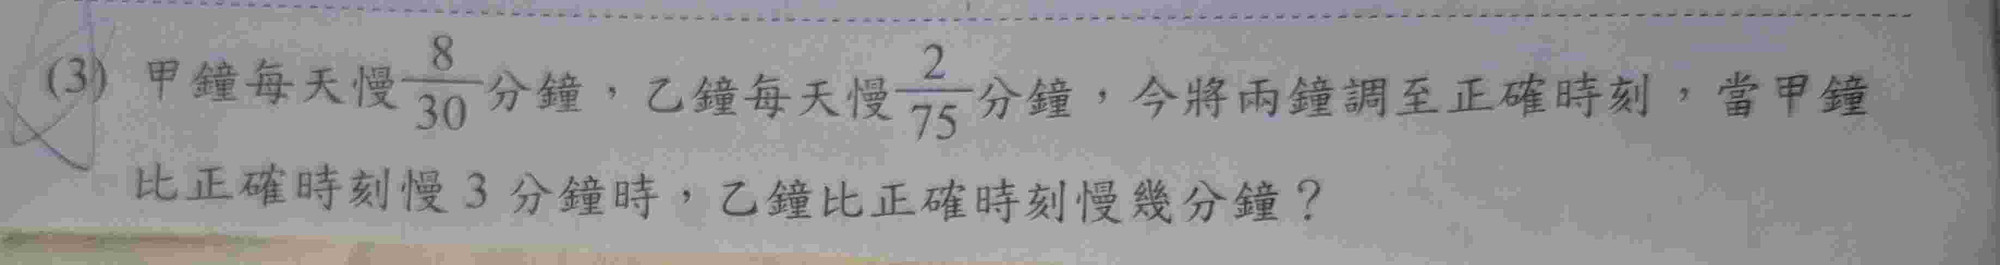 (3) 甲鐘每天慢8/30分鐘，乙鐘每天慢2/75分鐘，今將兩鐘調至正確時刻，當甲鐘
比正確時刻慢 3 分鐘時，乙鐘比正確時刻慢幾分鐘？